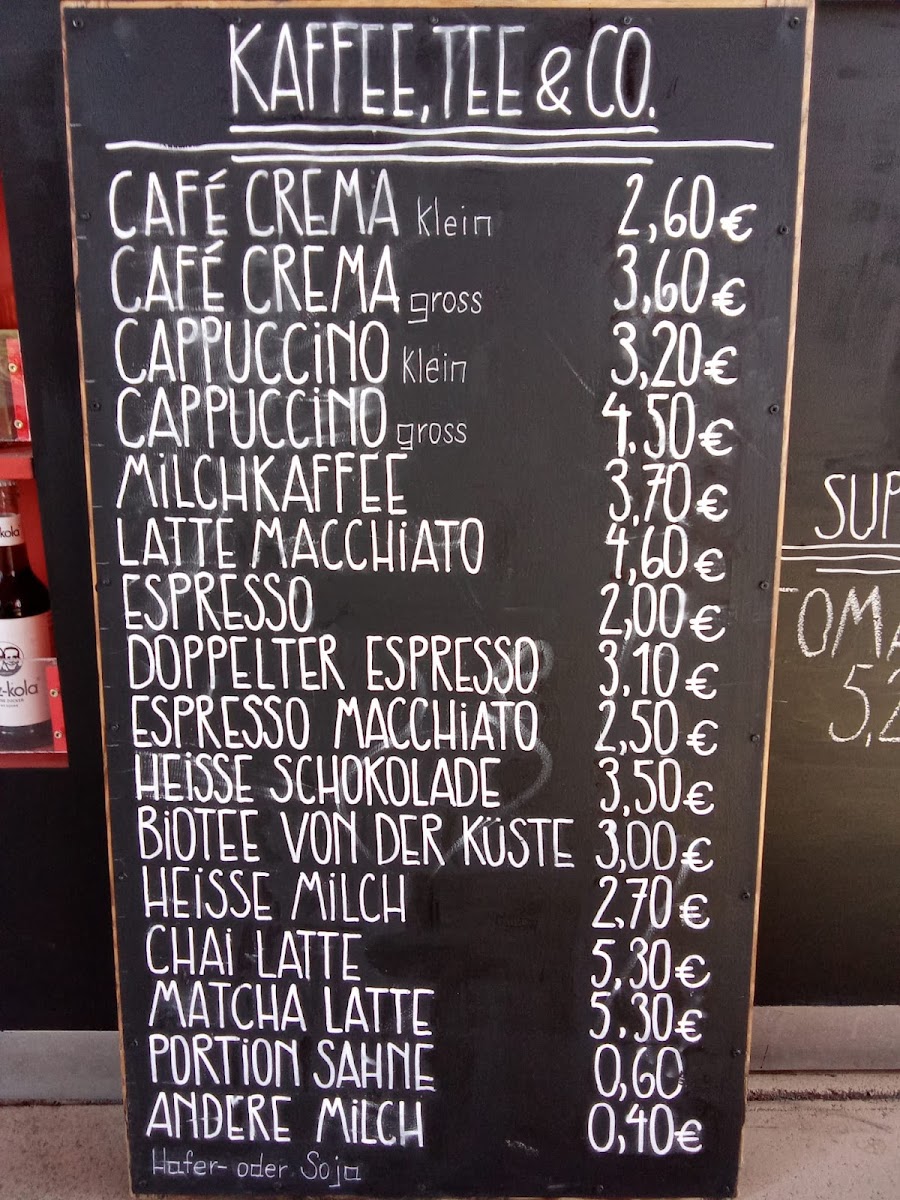 KAFFEE, TEE & CO.
CAFÉ CREMA klein 2,60 €
CAFÉ CREMA gross 3,60 €
CAPPUCCINO klein 3,20 €
CAPPUCCINO gross 4.50 €
MILCHKAFFEE 3,70 €
LATTE MACCHIATO 4,60 €
ESPRESSO 2,00 €
DOPPELTER ESPRESSO 3,10 €
ESPRESSO MACCHIATO 2,50 €
HEISSE SCHOKOLADE 3,50 €
BIOTEE VON DER KÜSTE 3,00 €
HEISSE MILCH 2,70 €
CHAI LATTE 5,30 €
MATCHA LATTE 5,30 €
PORTION SAHNE 0,60
ANDERE MILCH 0,40 €
Hafer- oder Soja
SUP
TOMA
5,2
kola
z-kola